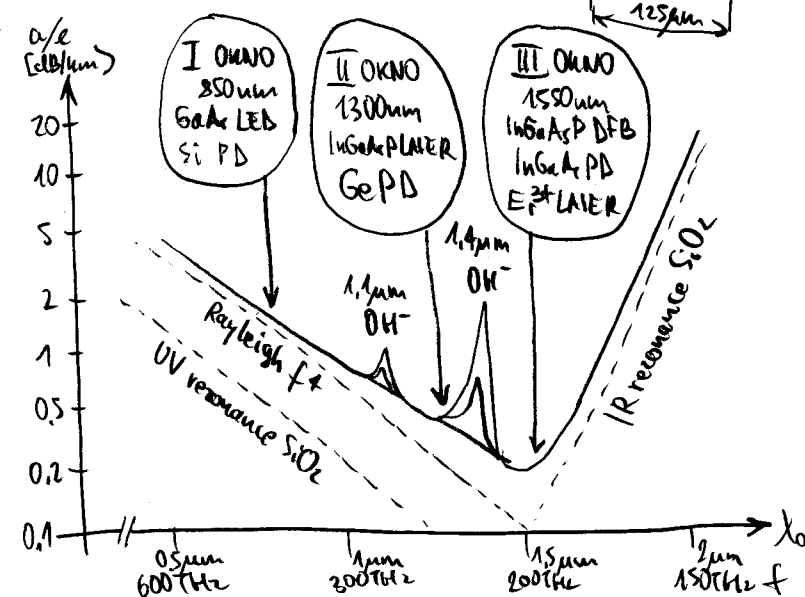 125μm
a/l
[dB/km]
20
10
5
2
1
0,5
0,2
0,1
I OKNO
850nm
GaAs LED
Si PD
II OKNO
1300nm
InGaAsP LASER
Ge PD
III OKNO
1550nm
InGaAsP DFB
InGaAs PD
Er³⁺ LASER
1,1μm
OH⁻
1,4μm
OH⁻
Rayleigh f⁴
UV resonance SiO₂
IR resonance SiO₂
0,5μm
600THz
1μm
300THz
1,5μm
200THz
2μm
150THz
λ₀
f